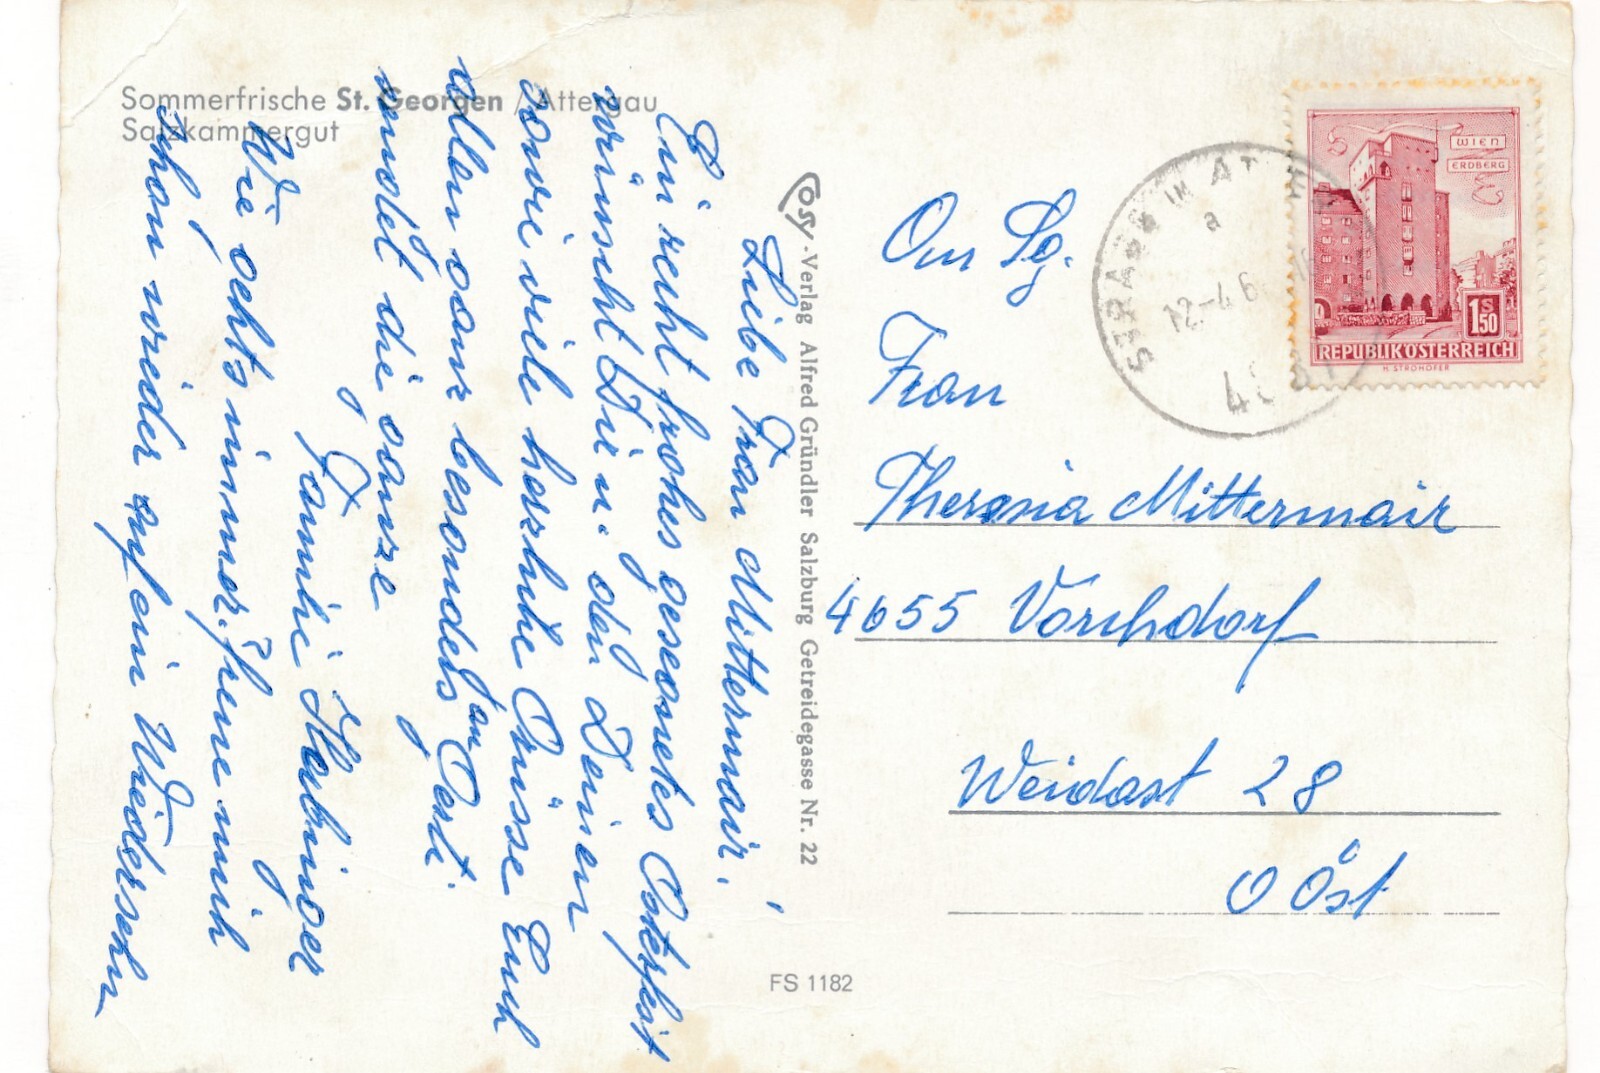 Sommerfrische St. Georgen / Attergau
Salzkammergut
Liebe Frau Mittermair,
Ein recht frohes gesegnetes Osterfest
wünscht Dir u. den Deinen
sowie viele herzliche Grüsse Euch
allen ganz besonders an Pert.
sendet die ganze
Familie
Wie gehts immer? freue mich
schon wieder auf ein Wiedersehn
Cosy-Verlag Alfred Gründler Salzburg Getreidegasse Nr. 22
FS 1182
WIEN
ERDBERG
1S50
REPUBLIK ÖSTERREICH
H. STROHOFER
STRASS IM ATT
a
12.-4.6
An Sg.
Frau
Theresia Mittermair
4655 Vorchdorf
Weidast 28
O Öst